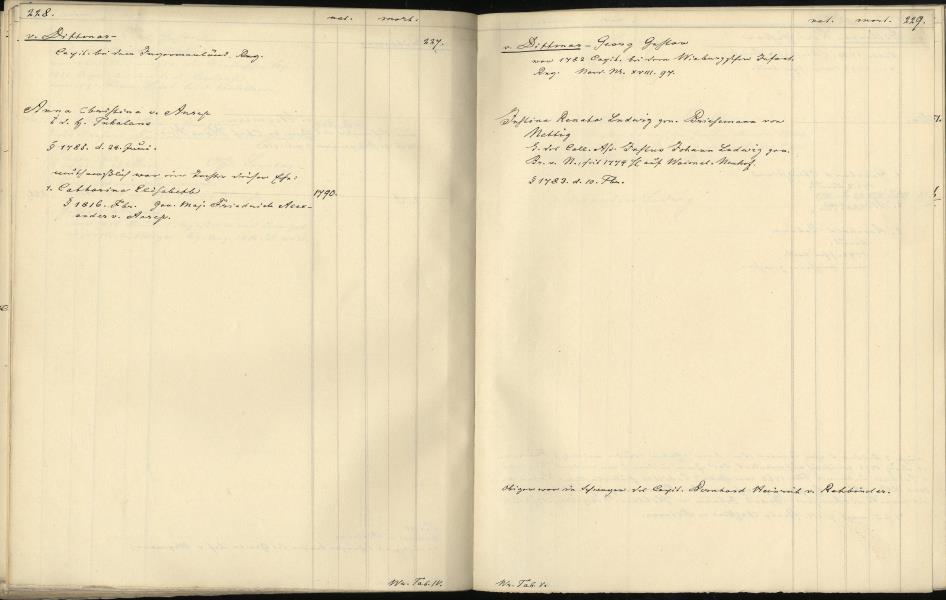 228.
nat. mort.
v. Dittmar- 227.
Capit. bei dem Ingermanländ. Reg.
Anna Christina v. Anrep
T. d. H.
§ 1788. d. 24. Juni.
muthmaßlich war eine Tochter dieser Ehe:
1. Catharina Elisabeth 1790.
§ 1816. Fbr. Gen. Maj. Friedrich Alex-
ander v. Anrep.
Wn. Tab. IV.
nat. mort. 229.
v. Dittmar- Georg Gustav
war 1782 Capit. bei dem Wieburgschen Infant.
Reg. Nord. M. XVIII. 97.
Justina Renata Ludwig gen. Briesemann von
Nettig
T. des Coll. Ass. Justus Johann Ludwig gen.
Br. v. N., seit 1774 auf Waimel-Neuhof.
§ 1783. d. 10. Fbr.
Obiger war ein Schwager des Capit. Bernhard Heinrich v. Rehbinder.
Wn. Tab. V.